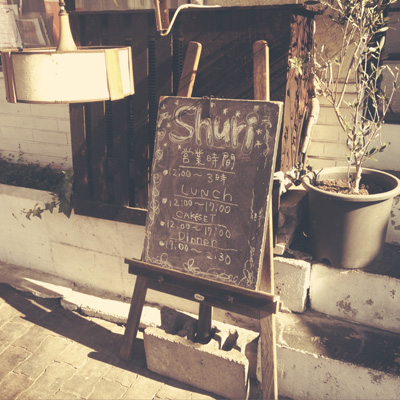 Shuri
営業時間
•12:00〜3時
LUNCH
•12:00〜17:00
CAKESET
•12:00〜17:00
Dinner
•17:00〜2:30